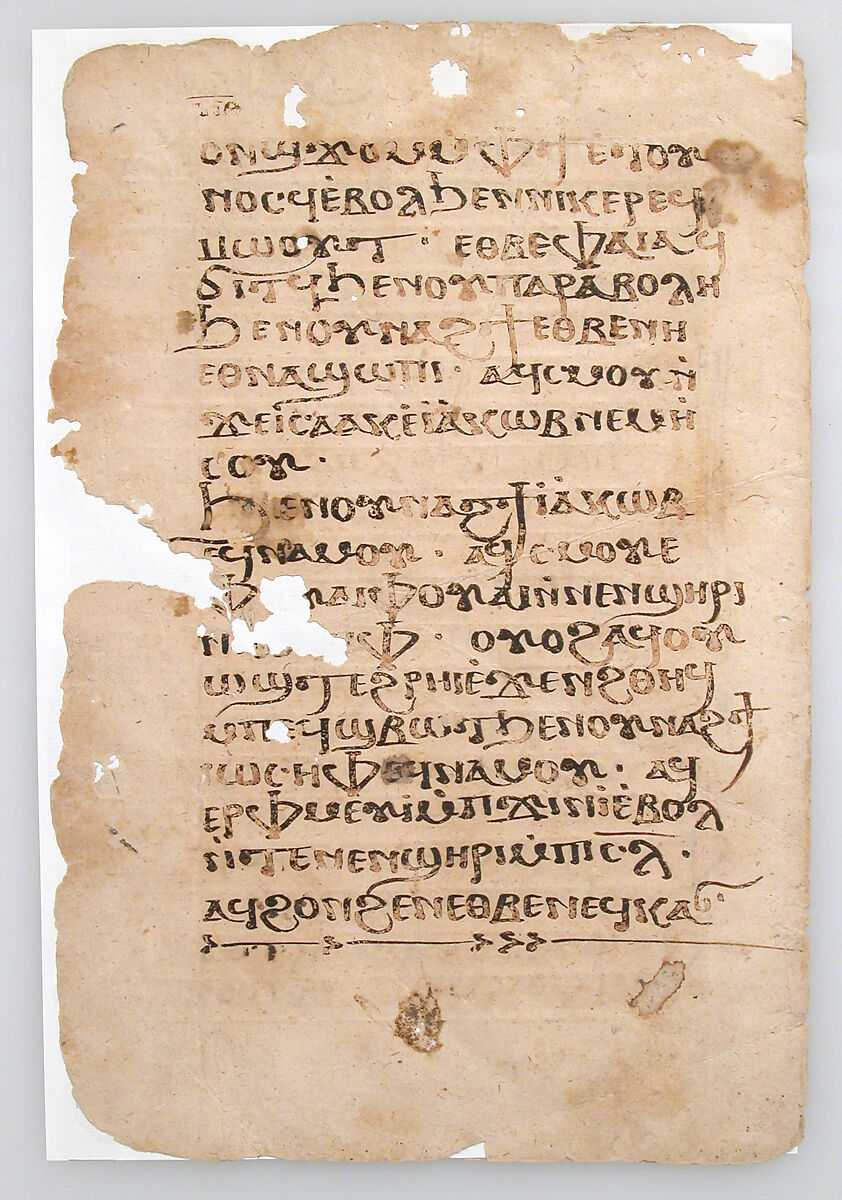 ⲟⲛϣϫⲟⲙⲙ̀ⲫϯⲉⲧⲟⲩ
ⲛⲟⲥϥⲉ̀ⲃⲟⲗϧⲉⲛⲛⲓⲕⲉⲣⲉϥ
ⲙⲱⲟⲩⲧ · ⲉⲑⲃⲉⲫⲁⲓⲁϥ
ϭⲓⲧϥϧⲉⲛⲟⲩⲡⲁⲣⲁⲃⲟⲗⲏ
ϧⲉⲛⲟⲩⲛⲁϩϯⲉⲑⲃⲉⲛⲏ
ⲉⲑⲛⲁϣⲱⲡⲓ · ⲁϥⲥⲙⲟⲩⲛ̀
ϫⲉⲓ̀ⲥⲁⲁⲕⲉ̀ⲓ̈ⲁⲕⲱⲃⲛⲉⲙⲏ̀
ⲥⲟⲩ ·
ϧⲉⲛⲟⲩⲛⲁϩϯⲓ̀ⲁⲕⲱⲃ
ⲉϥⲛⲁⲙⲟⲩ · ⲁϥⲥⲙⲟⲩⲉ
ⲫⲟⲩⲁⲓⲛ̀ⲛⲉⲛϣⲏⲣⲓ
ⲟⲩⲟϩⲁϥⲟⲩ
ⲱϣⲧⲉϩⲣⲏⲓⲉ̀ϫⲉⲛϩⲑⲏϥ
ⲙⲡⲉϥϣⲃⲱⲧϧⲉⲛⲟⲩⲛⲁϩϯ
ⲓⲱⲥⲏⲫⲉϥⲛⲁⲙⲟⲩ · ⲁϥ
ⲉⲣⲫⲙⲉⲩⲓ̀ⲙ̀ⲡϫⲓⲛⲓ̀ⲉ̀ⲃⲟⲗ
ⲛ̀ⲧⲉⲛⲉⲛϣⲏⲣⲓⲙ̀ⲡⲓⲥ̅ⲗ̅ ·
ⲁϥϩⲟⲛϩⲉⲛⲉⲑⲃⲉⲛⲉϥⲕⲁⲥ